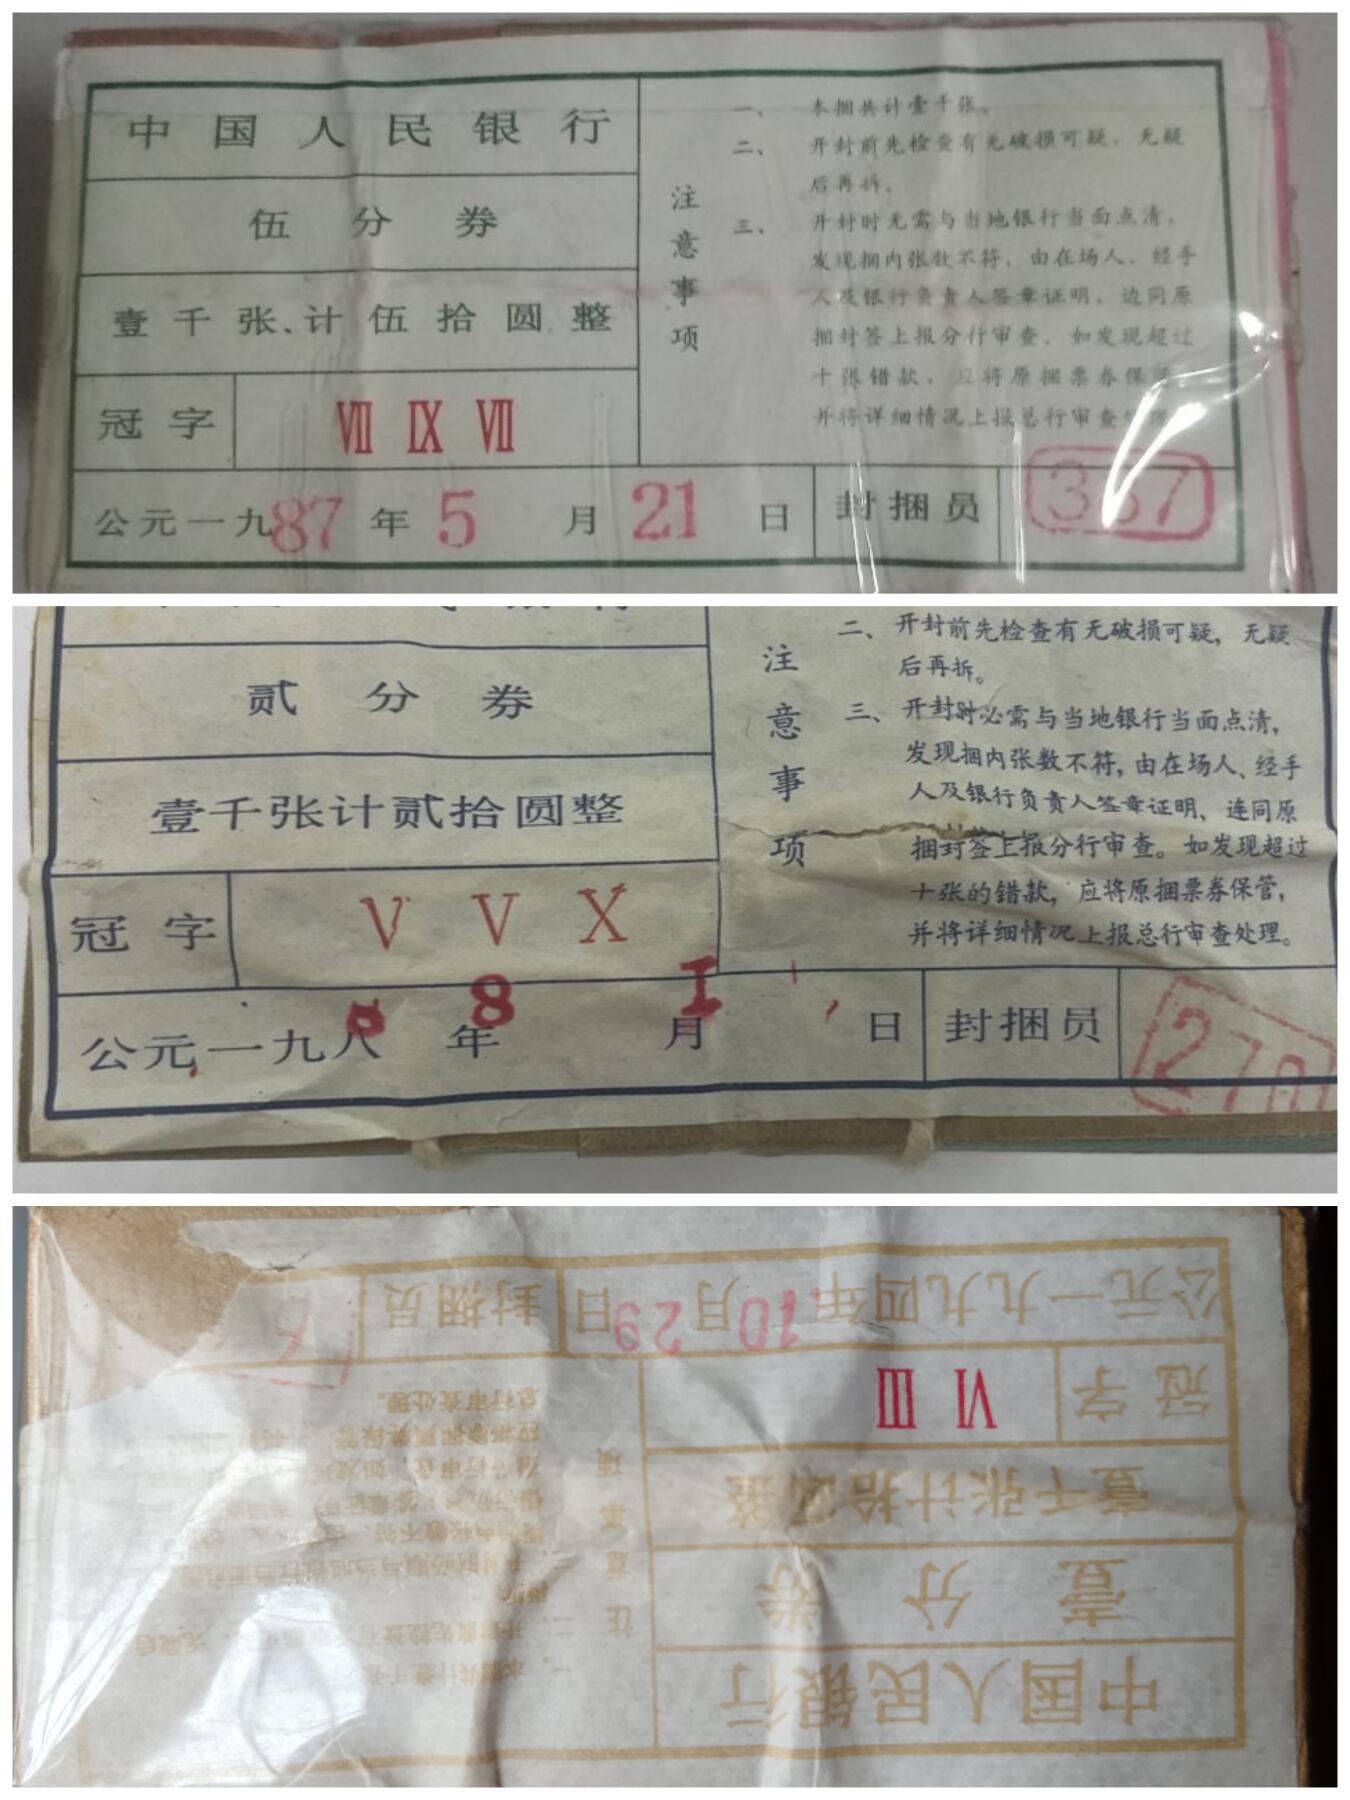 中国人民银行
伍分券
壹千张、计伍拾圆整
冠字 Ⅶ Ⅸ Ⅶ
公元一九87年5月21日 封捆员
注意事项
一、本捆共计壹千张。
二、开封前先检查有无破损可疑，无疑
后再拆。
三、开封时无需与当地银行当面点清，
发现捆内张数不符，由在场人、经手
人及银行负责人签章证明，边同原
捆封签上报分行审查，如发现超过
十张错款，应将原捆票券保管
并将详细情况上报总行审查处理
贰分券
壹千张计贰拾圆整
冠字 V V X
公元一九八 8年 1月 日 封捆员
270
注意事项
二、开封前先检查有无破损可疑，无疑
后再拆。
三、开封时必需与当地银行当面点清，
发现捆内张数不符，由在场人、经手
人及银行负责人签章证明，连同原
捆封签上报分行审查。如发现超过
十张的错款，应将原捆票券保管，
并将详细情况上报总行审查处理。
中国人民银行
壹分券
壹千张计拾圆整
冠字 Ⅵ Ⅲ
公元一九九四年10月29日 封捆员
注意事项
一、本捆共计壹千
二、开封前先检查有
再拆
三、开封时必须与当地银行当面点
捆内张数不符，由
银行负责人签章证明
分行审查，如发
应将原捆票券保管
总行审查处理。